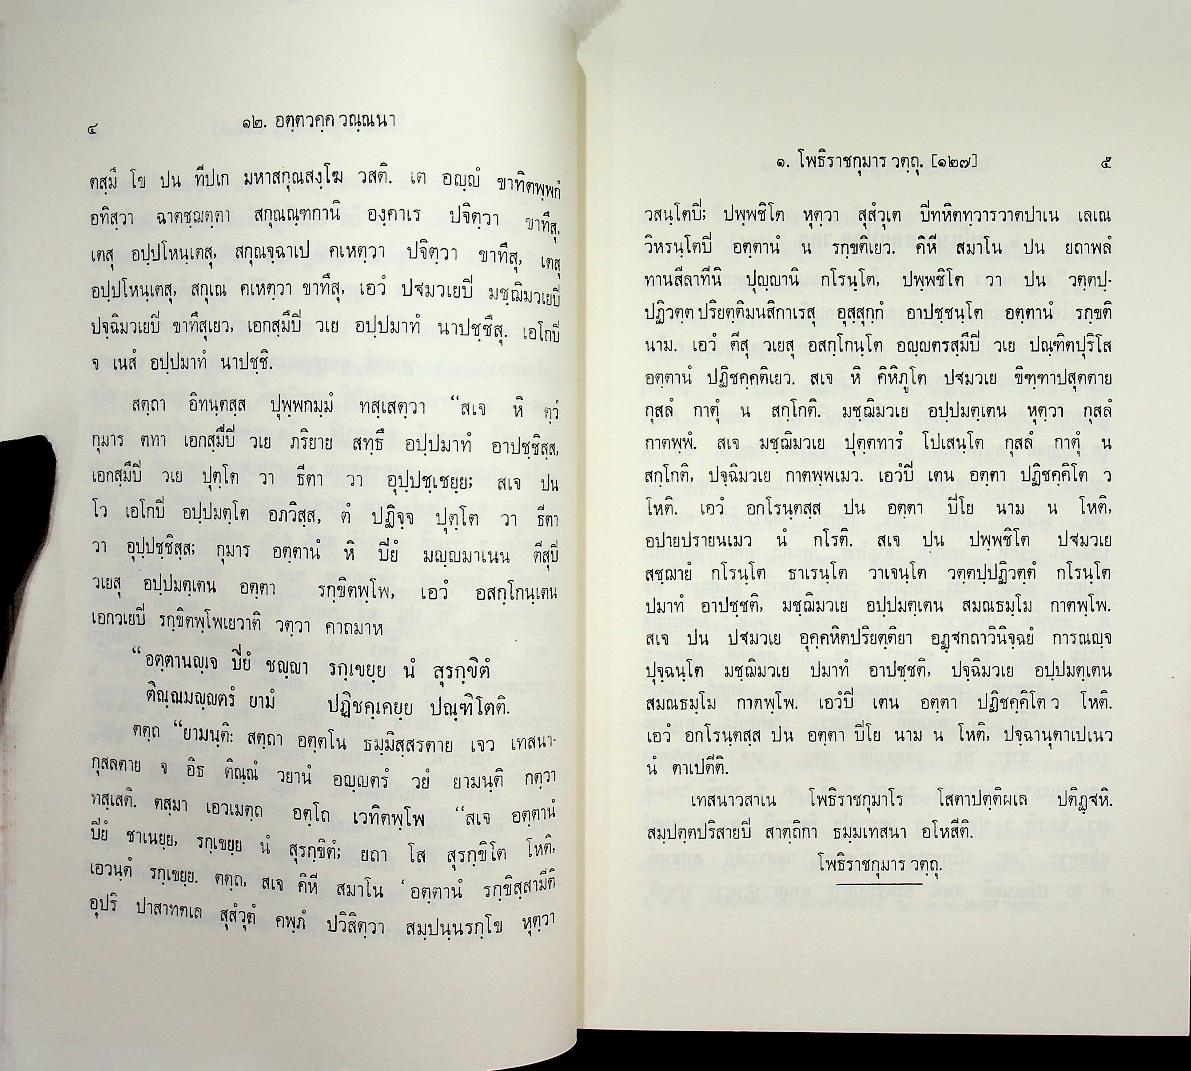 ๔
๑๒. อตฺตวคฺค วณฺณนา
ตสฺมึ โข ปน ทีปเก มหาสกุณสงฺโฆ วสติ. เต อญฺญํ ขาทิตพฺพกํ
อทิสฺวา ฉาตชฺฌตฺตา สกุณณฺฑกานิ องฺคาเร ปจิตฺวา ขาทึสุ,
เตสุ อปฺปโหนฺเตสุ, สกุณจฺฉาเป คเหตฺวา ปจิตฺวา ขาทึสุ, เตสุ
อปฺปโหนฺเตสุ, สกุเณ คเหตฺวา ขาทึสุ, เอวํ ปฐมวเยปิ มชฺฌิมวเยปิ
ปจฺฉิมวเยปิ ขาทึสุเยว, เอกสฺมึปิ วเย อปฺปมาทํ นาปชฺชึสุ. เอโกปิ
จ เนสํ อปฺปมาทํ นาปชฺชิ.
สตฺถา อิทนฺตสฺส ปุพฺพกมฺมํ ทสฺเสตฺวา “สเจ หิ ตฺวํ
กุมาร ตทา เอกสฺมึปิ วเย ภริยาย สทฺธึ อปฺปมาทํ อาปชฺชิสฺส,
เอกสฺมึปิ วเย ปุตฺโต วา ธีตา วา อุปฺปชฺเชยฺย; สเจ ปน
โว เอโกปิ อปฺปมตฺโต อภวิสฺส, ตํ ปฏิจฺจ ปุตฺโต วา ธีตา
วา อุปฺปชฺชิสฺส; กุมาร อตฺตานํ หิ ปิยํ มญฺญมาเนน ตีสุปิ
วเยสุ อปฺปมตฺเตน อตฺตา รกฺขิตพฺโพ, เอวํ อสกฺโกนฺเตน
เอกวเยปิ รกฺขิตพฺโพเยวาติ วตฺวา คาถมาห
“อตฺตานญฺเจ ปิยํ ชญฺญา รกฺเขยฺย นํ สุรกฺขิตํ
ติณฺณมญฺญตรํ ยามํ ปฏิชคฺเคยฺย ปณฺฑิโตติ.
ตตฺถ “ยามนฺติ: สตฺถา อตฺตโน ธมฺมิสฺสรตาย เจว เทสนา-
กุสลตาย จ อิธ ติณฺณํ วยานํ อญฺญตรํ วยํ ยามนฺติ กตฺวา
ทสฺเสติ. ตสฺมา เอวเมตฺถ อตฺโถ เวทิตพฺโพ “สเจ อตฺตานํ
ปิยํ ชาเนยฺย, รกฺเขยฺย นํ สุรกฺขิตํ; ยถา โส สุรกฺขิโต โหติ,
เอวนฺตํ รกฺเขยฺย. ตตฺถ, สเจ คิหี สมาโน ‘อตฺตานํ รกฺขิสฺสามีติ
อุปริ ปาสาทตเล สุสํวุตํ คพฺภํ ปวิสิตฺวา สมฺปนฺนรกฺโข หุตฺวา
๑. โพธิราชกุมาร วตฺถุ. [๑๒๗]
๕
วสนฺโตปิ; ปพฺพชิโต หุตฺวา สุสํวุเต ปิหิตทฺวารวาตปาเน เลเณ
วิหรนฺโตปิ อตฺตานํ น รกฺขติเยว. คิหี สมาโน ปน ยถาพลํ
ทานสีลาทีนิ ปุญฺญานิ กโรนฺโต, ปพฺพชิโต วา ปน วตฺตปฺ-
ปฏิวตฺต ปริยตฺติมนสิกาเรสุ อุสฺสุกฺกํ อาปชฺชนฺโต อตฺตานํ รกฺขติ
นาม. เอวํ ตีสุ วเยสุ อสกฺโกนฺโต อญฺญตรสฺมึปิ วเย ปณฺฑิตปุริโส
อตฺตานํ ปฏิชคฺคติเยว. สเจ หิ คิหิภูโต ปฐมวเย ขิฑฺฑาปสุตตาย
กุสลํ กาตุํ น สกฺโกติ. มชฺฌิมวเย อปฺปมตฺเตน หุตฺวา กุสลํ
กาตพฺพํ. สเจ มชฺฌิมวเย ปุตฺตทารํ โปเสนฺโต กุสลํ กาตุํ น
สกฺโกติ, ปจฺฉิมวเย กาตพฺพเมว. เอวํปิ เตน อตฺตา ปฏิชคฺคิโต ว
โหติ. เอวํ อกโรนฺตสฺส ปน อตฺตา ปิโย นาม น โหติ,
อปายปรายนเมว นํ กโรติ. สเจ ปน ปพฺพชิโต ปฐมวเย
สชฺฌายํ กโรนฺโต ธาเรนฺโต วาเจนฺโต วตฺตปฺปฏิวตฺตํ กโรนฺโต
ปมาทํ อาปชฺชติ, มชฺฌิมวเย อปฺปมตฺเตน สมณธมฺโม กาตพฺโพ.
สเจ ปน ปฐมวเย อุคฺคหิตปริยตฺติยา อฏฺฐกถาวินิจฺฉยํ การณญฺจ
ปุจฺฉนฺโต มชฺฌิมวเย ปมาทํ อาปชฺชติ, ปจฺฉิมวเย อปฺปมตฺเตน
สมณธมฺโม กาตพฺโพ. เอวํปิ เตน อตฺตา ปฏิชคฺคิโต ว โหติ.
เอวํ อกโรนฺตสฺส ปน อตฺตา ปิโย นาม น โหติ, ปจฺฉานุตาเปเนว
นํ ตาเปตีติ.
เทสนาวสาเน โพธิราชกุมาโร โสตาปตฺติผเล ปติฏฺฐหิ.
สมฺปตฺตปริสายปิ สาตฺถิกา ธมฺมเทสนา อโหสีติ.
โพธิราชกุมาร วตฺถุ.